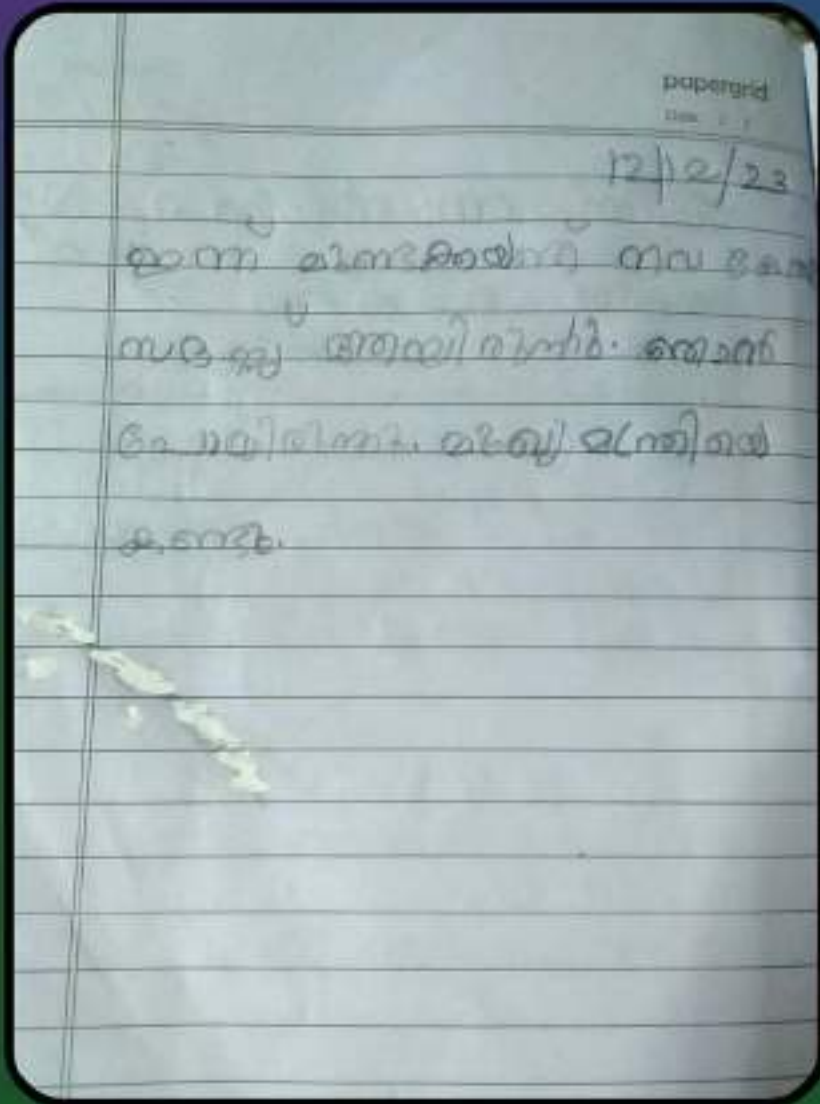 papergrid
Date : /
12/12/23
ഇന്ന് മുണ്ടക്കയത്ത് നവ കേരള
സദസ്സ് ആയിരുന്നു. ഞാൻ
പോയിരുന്നു. മുഖ്യ മന്ത്രിയെ
കണ്ടു.